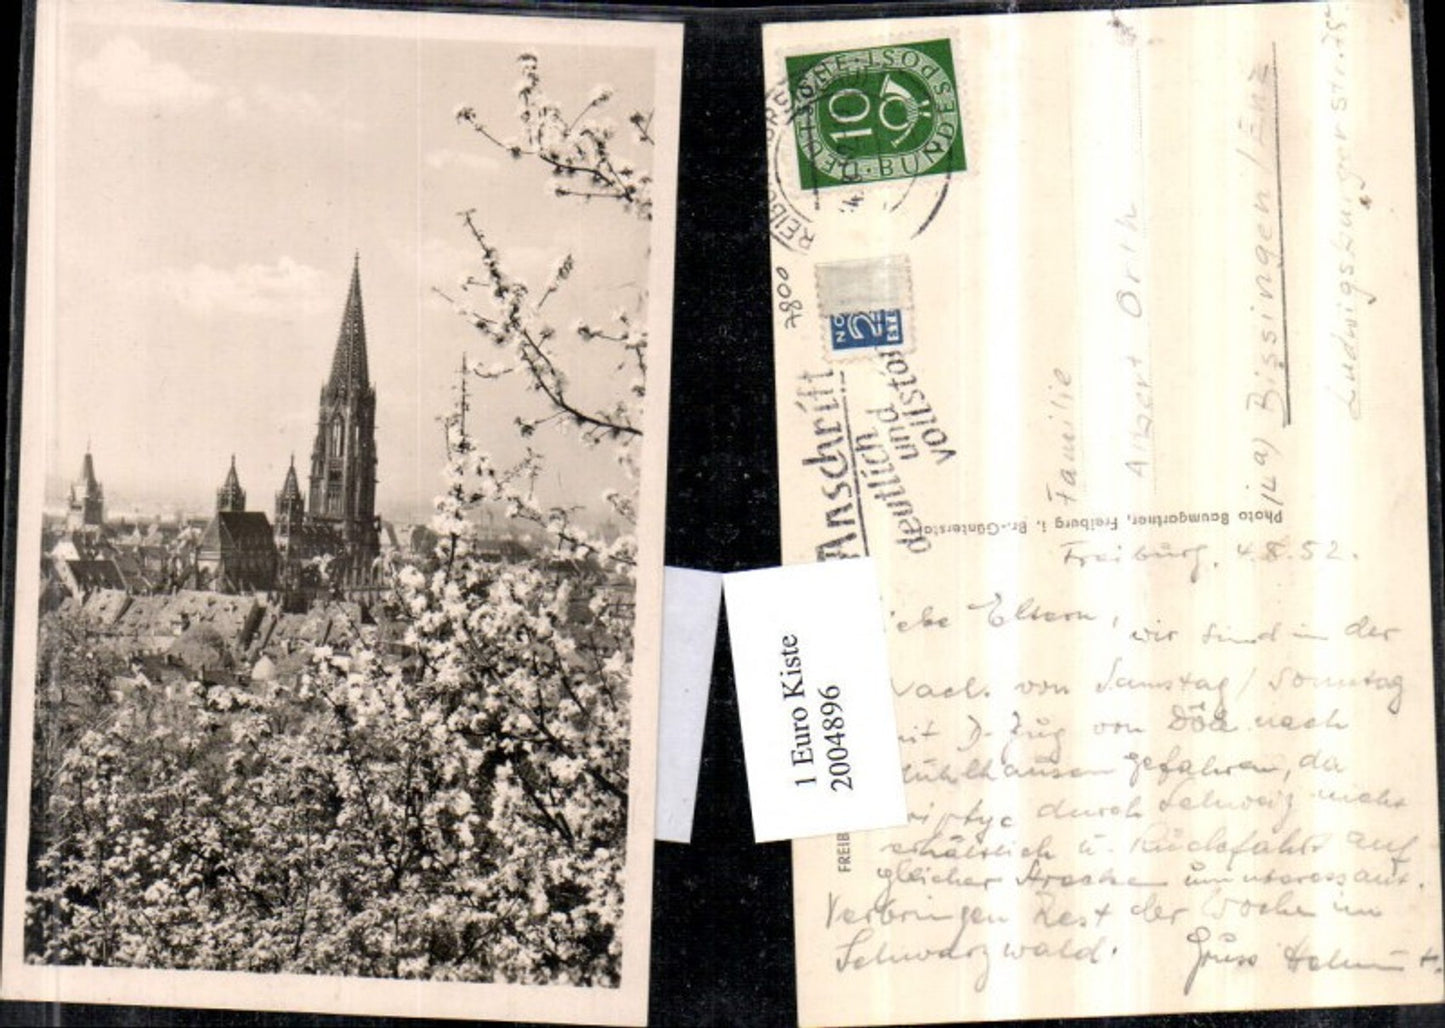 DEUTSCHE·BUNDESPOST
10
7800
NO
2
STE
Anschrift
deutlich
und
vollstä
Familie
Albert Orth
(14a) Bissingen/Enz
Ludwigsburgerstr. 75
Photo Baumgartner, Freiburg i. Br.-Güntersta
1 Euro Kiste
2004896
FREIB
Freiburg, 4.8.52.
iebe Eltern,
wir sind in der
Nacht von Samstag/Sonntag
mit D-Zug von nach
Mühlhausen gefahren, da
durch Schweiz nicht
erhältlich u. Rückfahrt auf
gleicher Strecke uninteressant.
Verbringen Rest der Woche im
Schwarzwald. Gruss Helmut